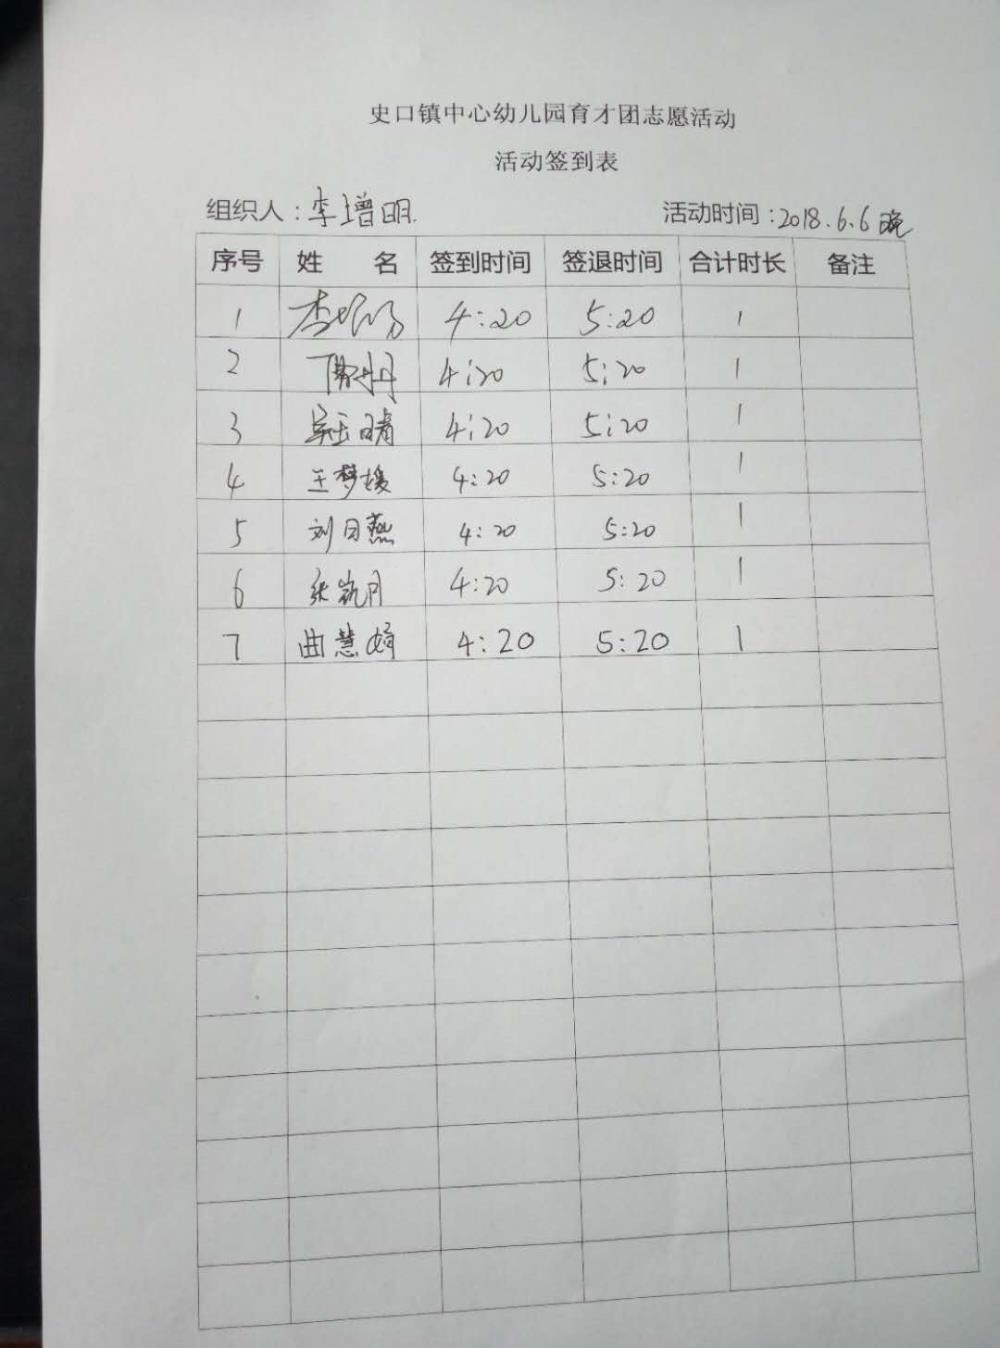 史口镇中心幼儿园育才团志愿活动
活动签到表
组织人：李增明 活动时间：2018.6.6晚
序号 姓 名 签到时间 签退时间 合计时长 备注
1 4:20 5:20 1
2 4:20 5:20 1
3 4:20 5:20 1
4 王梦媛 4:20 5:20 1
5 刘日燕 4:20 5:20 1
6 张凯月 4:20 5:20 1
7 曲慧娟 4:20 5:20 1